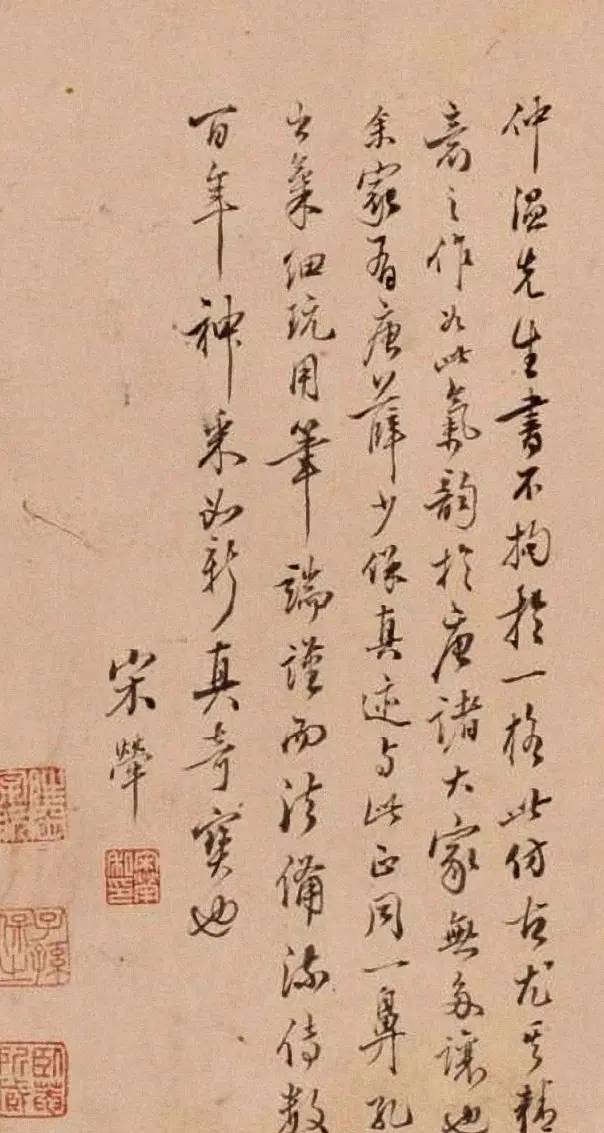 仲温先生書不拘於一格此仿古尤其精
意之作如此氣韻於唐諸大家無多讓也
余家有唐薛少保真迹与此正同一鼻孔
出氣細玩用筆端謹而法備流傳数
百年神采如新真奇寶也
宋犖
子孫保之